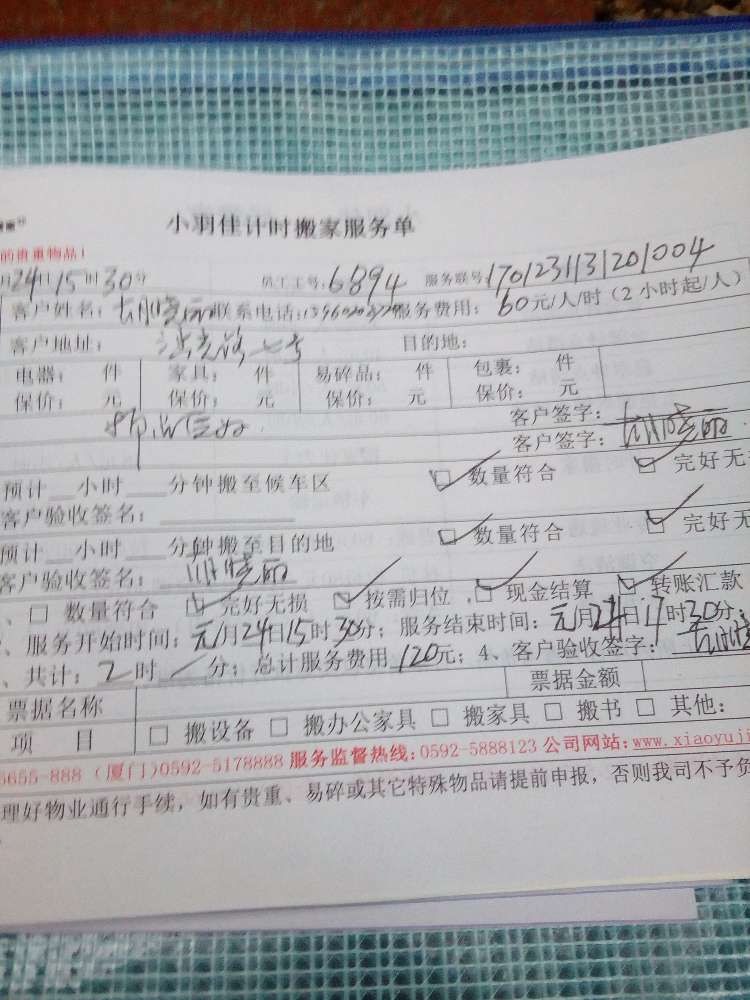 小羽佳计时搬家服务单
的贵重物品！
月24日15时30分 员工工号：6894 服务联号170123113201004
客户姓名： 联系电话： 服务费用：60元/人/时（2小时起/人）
客户地址： 目的地：
电器： 件 家具： 件 易碎品： 件 包裹： 件
保价： 元 保价： 元 保价： 元 保价： 元
客户签字：
客户签字：
预计__小时___分钟搬至候车区 ☑ 数量符合 ☑ 完好无
客户验收签名：
预计__小时___分钟搬至目的地 ☑ 数量符合 ☑ 完好无
客户验收签名：
、□ 数量符合 ☑ 完好无损 ☑ 按需归位，☑ 现金结算 ☑ 转账汇款
、服务开始时间：元月24日15时30分；服务结束时间：元月24日17时30分；
、共计：2时/分；总计服务费用120元；4、客户验收签字：
票据名称 票据金额
项 目 □ 搬设备 □ 搬办公家具 □ 搬家具 □ 搬书 □ 其他：
5655-888（厦门）0592-5178888 服务监督热线：0592-5888123 公司网站：www.xiaoyuji
理好物业通行手续，如有贵重、易碎或其它特殊物品请提前申报，否则我司不予负